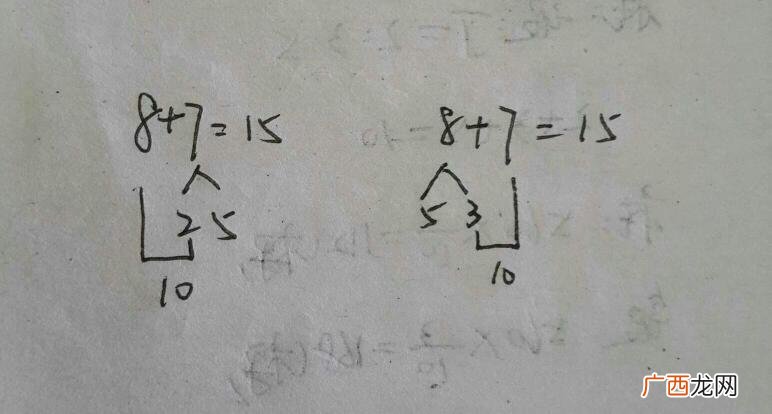 8+7=15 8+7=15
2 5 5 3
10 10
广西龙网